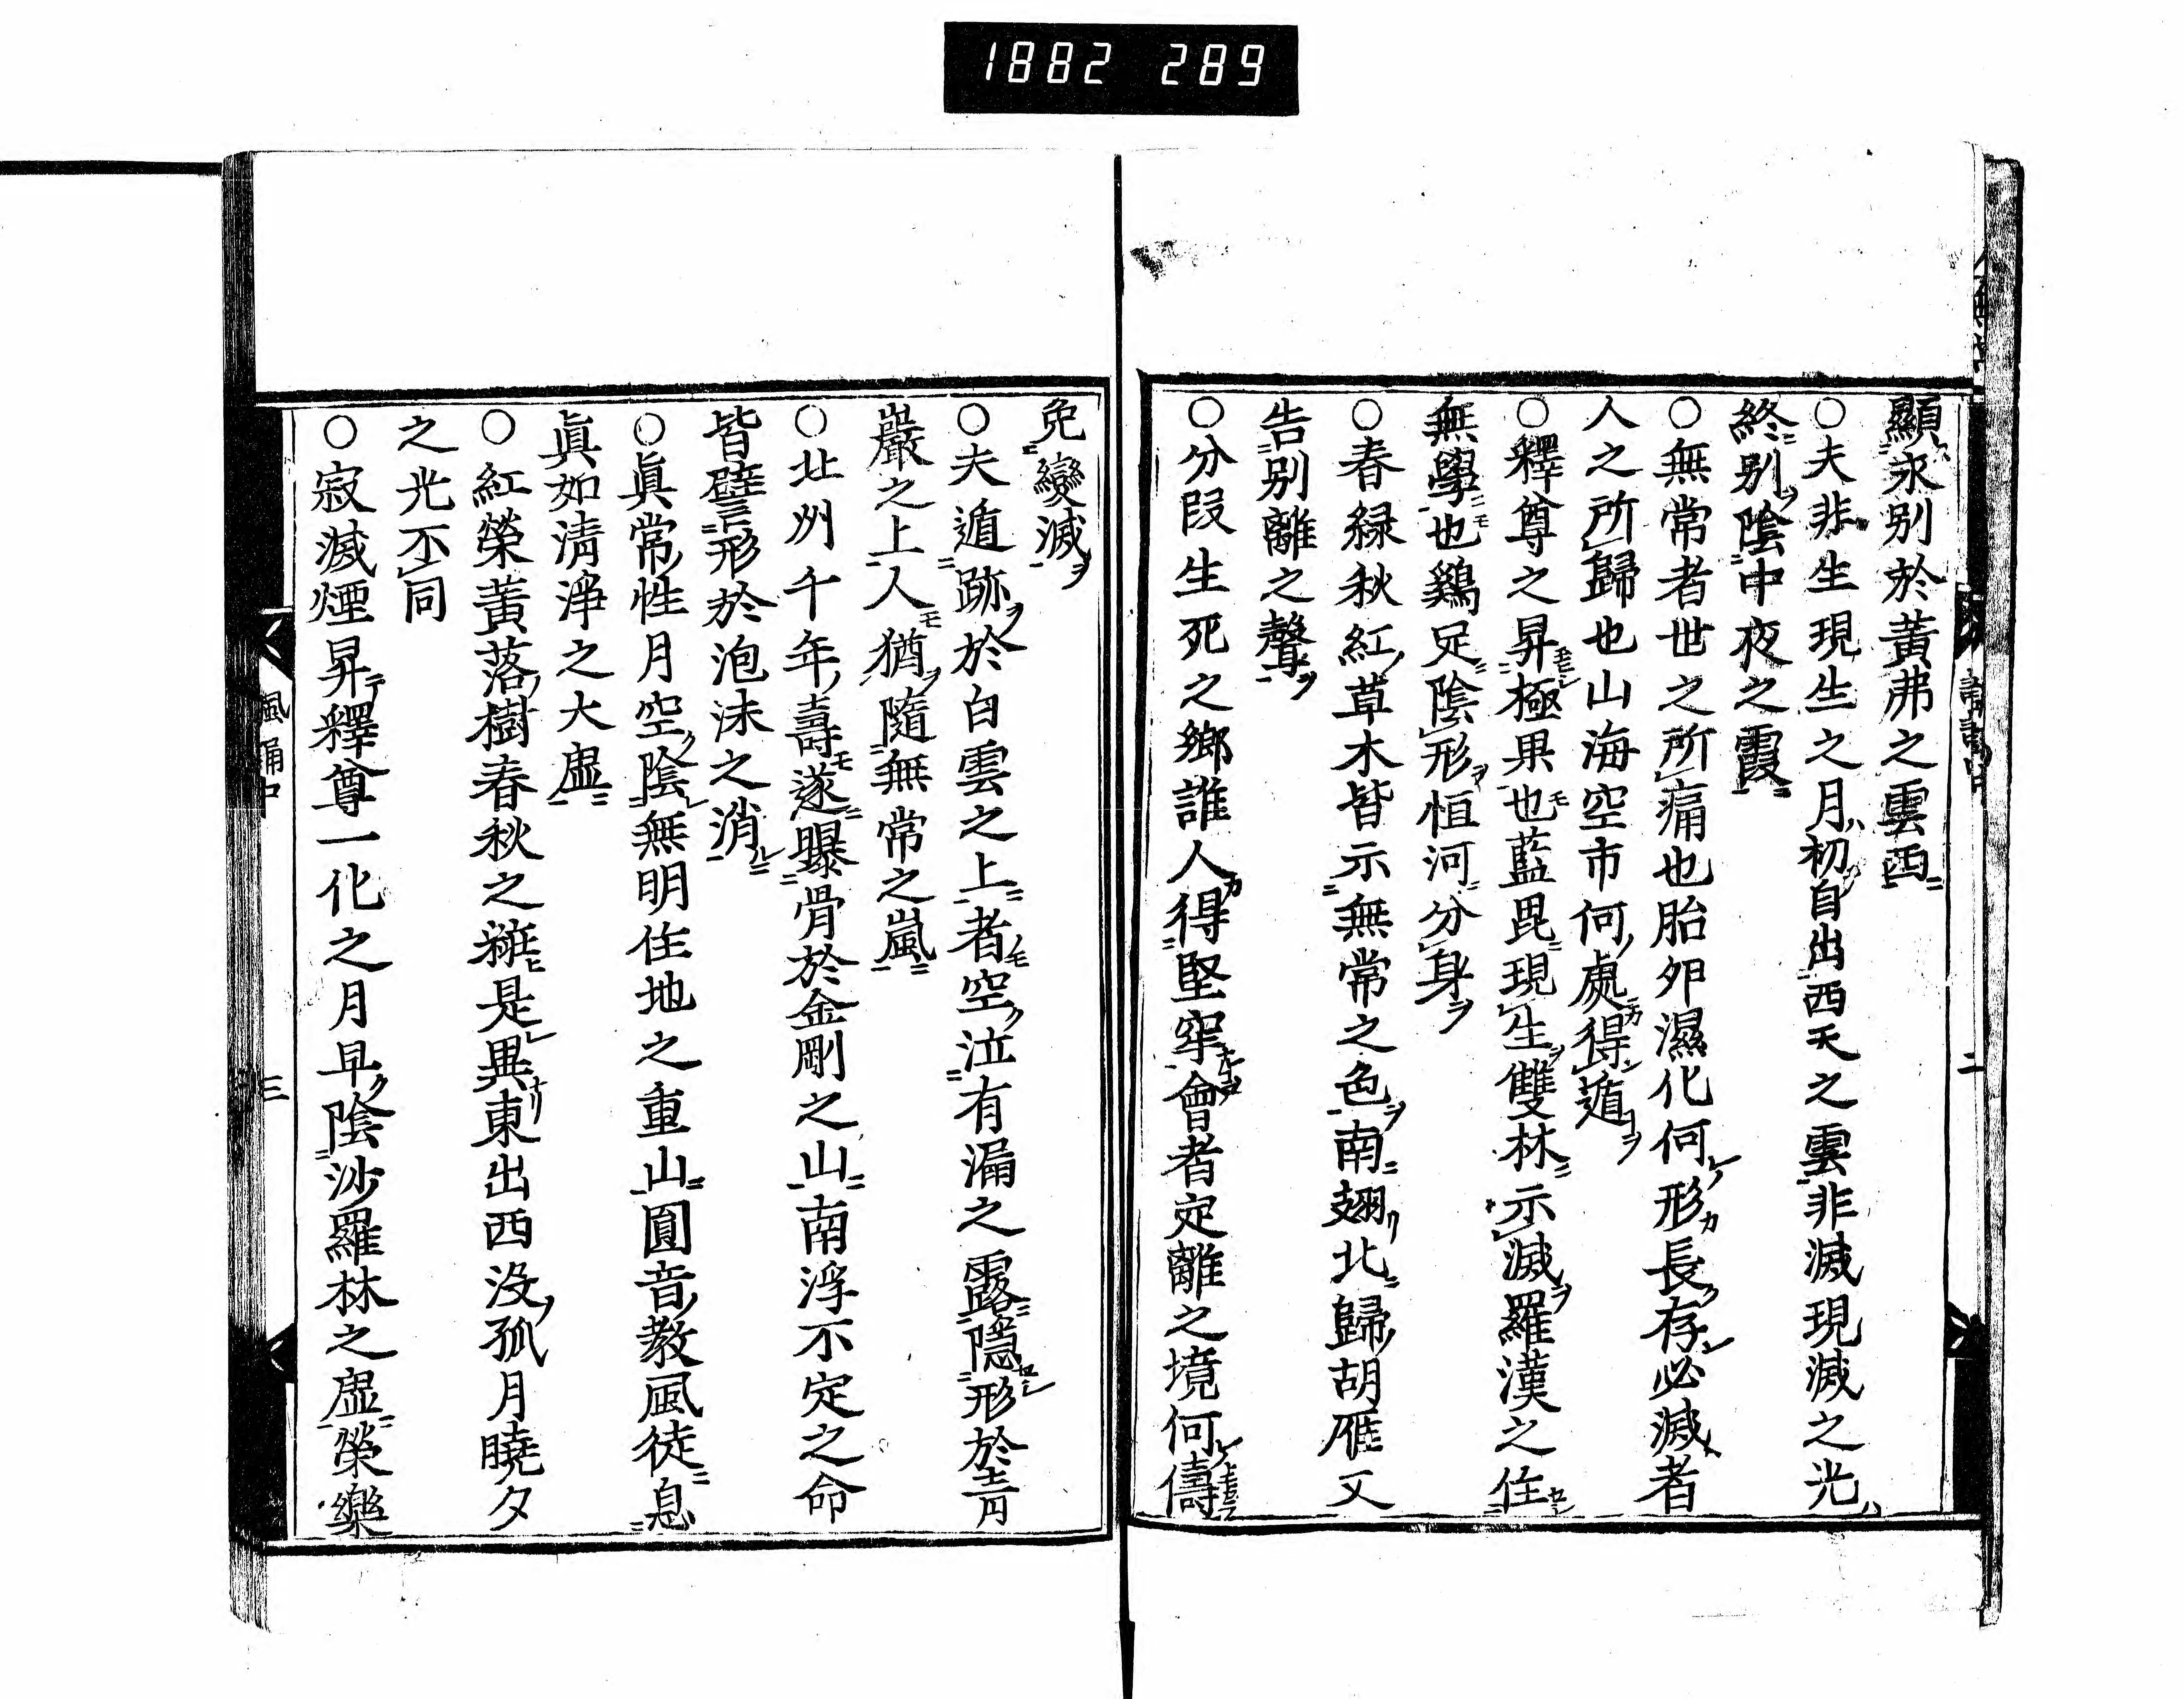 1882 289
顯永別於黃弗之雲西
○夫非生現生之月初自出西天之雲非滅現滅之光
終別陰中夜之霞
○無常者世之所痛也胎卵濕化何形長存必滅者
人之所歸也山海空市何處得遁
○釋尊之昇極果也藍毘現生雙林示滅羅漢之住
無學也鷄足陰形恒河分身
○春緑秋紅草木皆示無常之色南翅北歸胡雁又
告別離之聲
○分段生死之鄉誰人得堅牢會者定離之境何儔
二
免變滅
○夫遁跡於白雲之上者空泣有漏之露隱形於青
巖之上人猶隨無常之嵐
○北州千年壽遂曝骨於金剛之山南浮不定之命
皆譬形於泡沫之消
○眞常性月空陰無明住地之重山圓音教風徒息
眞如淸淨之大虛
○紅榮黃落樹春秋之粧是異東出西沒孤月曉夕
之光不同
○寂滅煙昇釋尊一化之月早陰沙羅林之虛榮樂
諷誦中
三